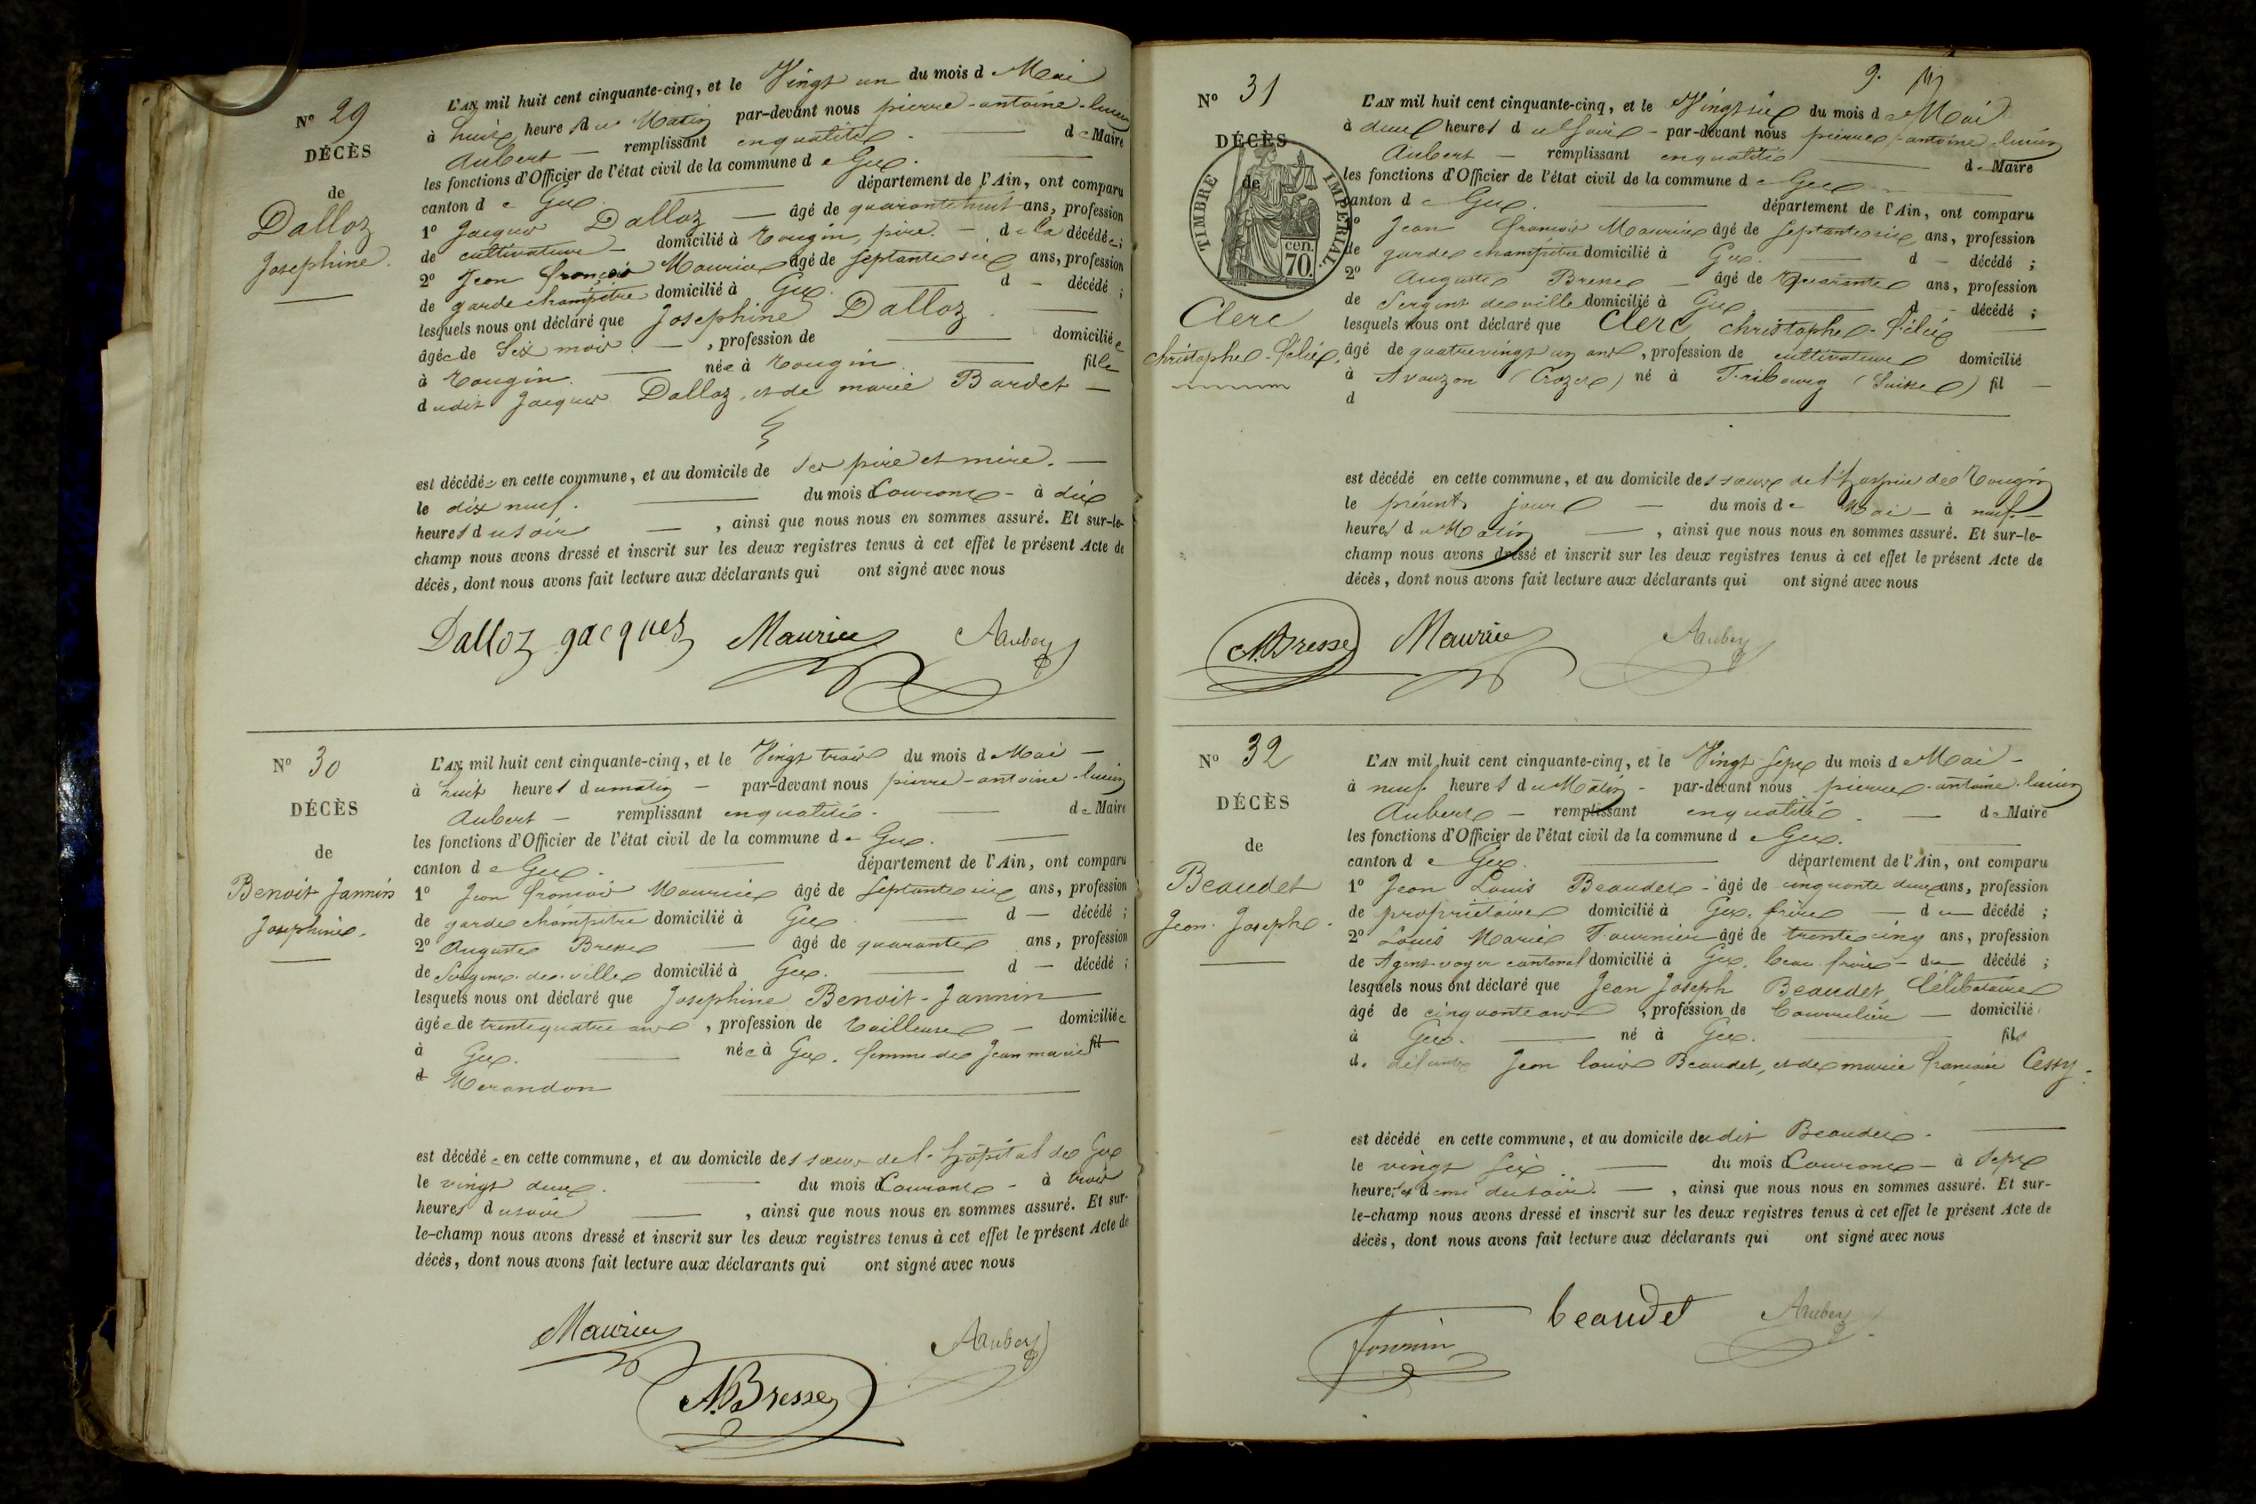 N° 29
DÉCÈS
de
Dalloz
Josephine.
L'AN mil huit cent cinquante-cinq, et le Vingt un du mois d e Mai
à huit heures du Matin par-devant nous pierre-antoine-lucien
Aubert — remplissant en qualité d e Maire
les fonctions d'Officier de l'état civil de la commune d e Gex.
canton d e Gex. département de l'Ain, ont comparu
1° Jacques Dalloz — âgé de quarante huit ans, profession
de cultivateur — domicilié à Tougin, père — d e la décédée;
2° Jean françois Maurice âgé de septante six ans, profession
de garde champêtre domicilié à Gex. d — décédé;
lesquels nous ont déclaré que Josephine Dalloz.
âgée de Six mois. —, profession de — domiciliée
à Tougin. — née à Tougin — fille
dudit Jacques Dalloz, et de marie Bardet —
est décédée en cette commune, et au domicile de ses père et mère. —
le dix neuf. — du mois Courant — à dix
heures du soir —, ainsi que nous nous en sommes assuré. Et sur-le-
champ nous avons dressé et inscrit sur les deux registres tenus à cet effet le présent Acte de
décès, dont nous avons fait lecture aux déclarants qui ont signé avec nous
Dalloz jacques Maurice Aubert
N° 30
DÉCÈS
de
Benoit Jannin
Josephine.
L'AN mil huit cent cinquante-cinq, et le Vingt trois du mois d e Mai —
à huit heures du matin — par-devant nous pierre-antoine-lucien
Aubert — remplissant en qualité. — d e Maire
les fonctions d'Officier de l'état civil de la commune d e Gex.
canton d e Gex. département de l'Ain, ont comparu
1° Jean françois Maurice âgé de septante six ans, profession
de garde champêtre domicilié à Gex — d — décédé;
2° Auguste Bresse — âgé de quarante ans, profession
de Sergent de ville domicilié à Gex. — d — décédé;
lesquels nous ont déclaré que Josephine Benoit-Jannin
âgée de trente quatre ans, profession de Tailleuse — domiciliée
à Gex. — née à Gex. femme de Jean marie fil
d Merandon
est décédée en cette commune, et au domicile des sœurs de l'hôpital de Gex
le vingt deux. — du mois Courant — à trois
heures du soir —, ainsi que nous nous en sommes assuré. Et sur-
le-champ nous avons dressé et inscrit sur les deux registres tenus à cet effet le présent Acte de
décès, dont nous avons fait lecture aux déclarants qui ont signé avec nous
Maurice Aubert
A. Bresse
9.
N° 31
DÉCÈS
de
TIMBRE IMPÉRIAL.
cen.
70.
Clerc
christophe-félix.
L'AN mil huit cent cinquante-cinq, et le Vingt six du mois d e Mai
à deux heures du Soir — par-devant nous pierre-antoine lucien
Aubert — remplissant en qualité — d e Maire
les fonctions d'Officier de l'état civil de la commune d e Gex
canton d e Gex. département de l'Ain, ont comparu
1° Jean françois Maurice âgé de septante six ans, profession
de garde champêtre domicilié à Gex. — d — décédé;
2° Auguste Bresse — âgé de Quarante ans, profession
de Sergent de ville domicilié à Gex — d — décédé;
lesquels nous ont déclaré que Clerc christophe-félix
âgé de quatre vingt un ans, profession de cultivateur domicilié
à Avouzon (Crozet) né à Fribourg (Suisse) fil —
d
est décédé en cette commune, et au domicile des sœurs de l'hospice de Tougin
le présent jour — du mois de Mai — à neuf —
heures du Matin —, ainsi que nous nous en sommes assuré. Et sur-le-
champ nous avons dressé et inscrit sur les deux registres tenus à cet effet le présent Acte de
décès, dont nous avons fait lecture aux déclarants qui ont signé avec nous
A. Bresse Maurice Aubert
N° 32
DÉCÈS
de
Beaudet
Jean-Joseph.
L'AN mil huit cent cinquante-cinq, et le Vingt-Sept du mois d e Mai —
à neuf heures du Matin — par-devant nous pierre-antoine-lucien
Aubert — remplissant en qualité. — d e Maire
les fonctions d'Officier de l'état civil de la commune d e Gex.
canton d e Gex. département de l'Ain, ont comparu
1° Jean Louis Beaudet — âgé de cinquante deux ans, profession
de propriétaire domicilié à Gex. frère — du décédé;
2° Louis Marie Fournier âgé de trente cinq ans, profession
de Agent-voyer cantonal domicilié à Gex. beau frère — du décédé;
lesquels nous ont déclaré que Jean Joseph Beaudet Célibataire
âgé de cinquante ans, profession de Courrelier — domicilié
à Gex. — né à Gex. — fils
d. défunts Jean louis Beaudet, et de marie françoise Cessy.
est décédé en cette commune, et au domicile dudit Beaudet.
le vingt six. — du mois Courant — à sept
heures et demi du soir. —, ainsi que nous nous en sommes assuré. Et sur-
le-champ nous avons dressé et inscrit sur les deux registres tenus à cet effet le présent Acte de
décès, dont nous avons fait lecture aux déclarants qui ont signé avec nous
Fournier beaudet Aubert